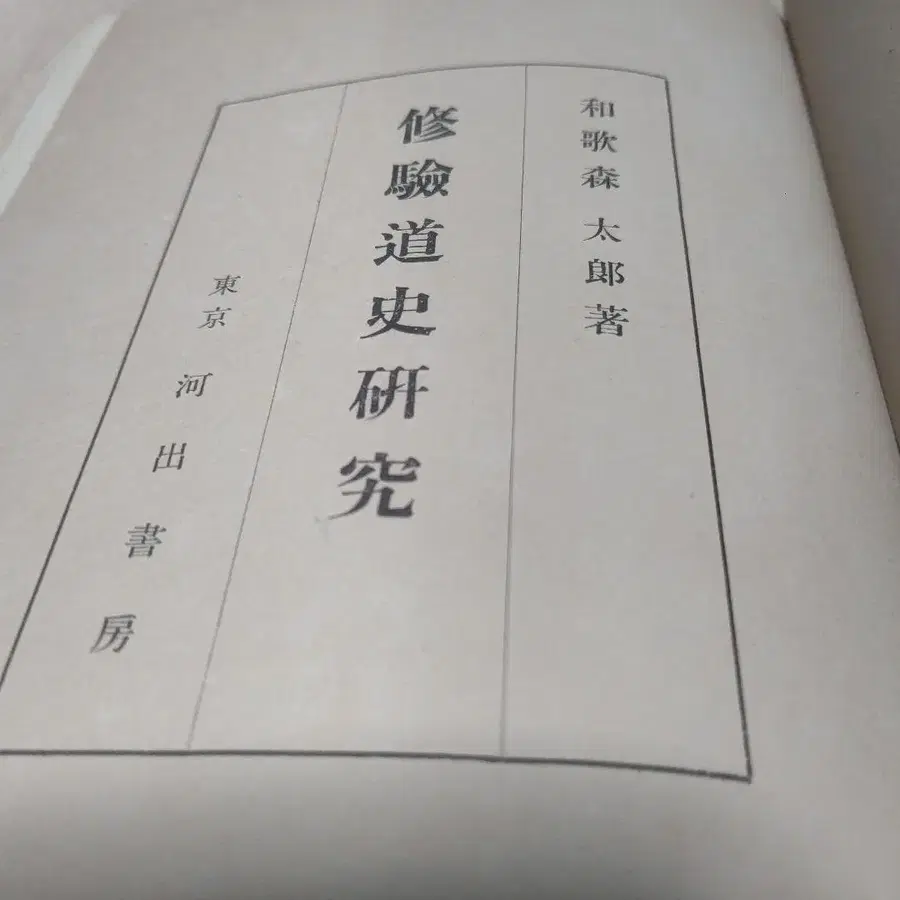 和歌森太郎著
修驗道史研究
東京 河出書房